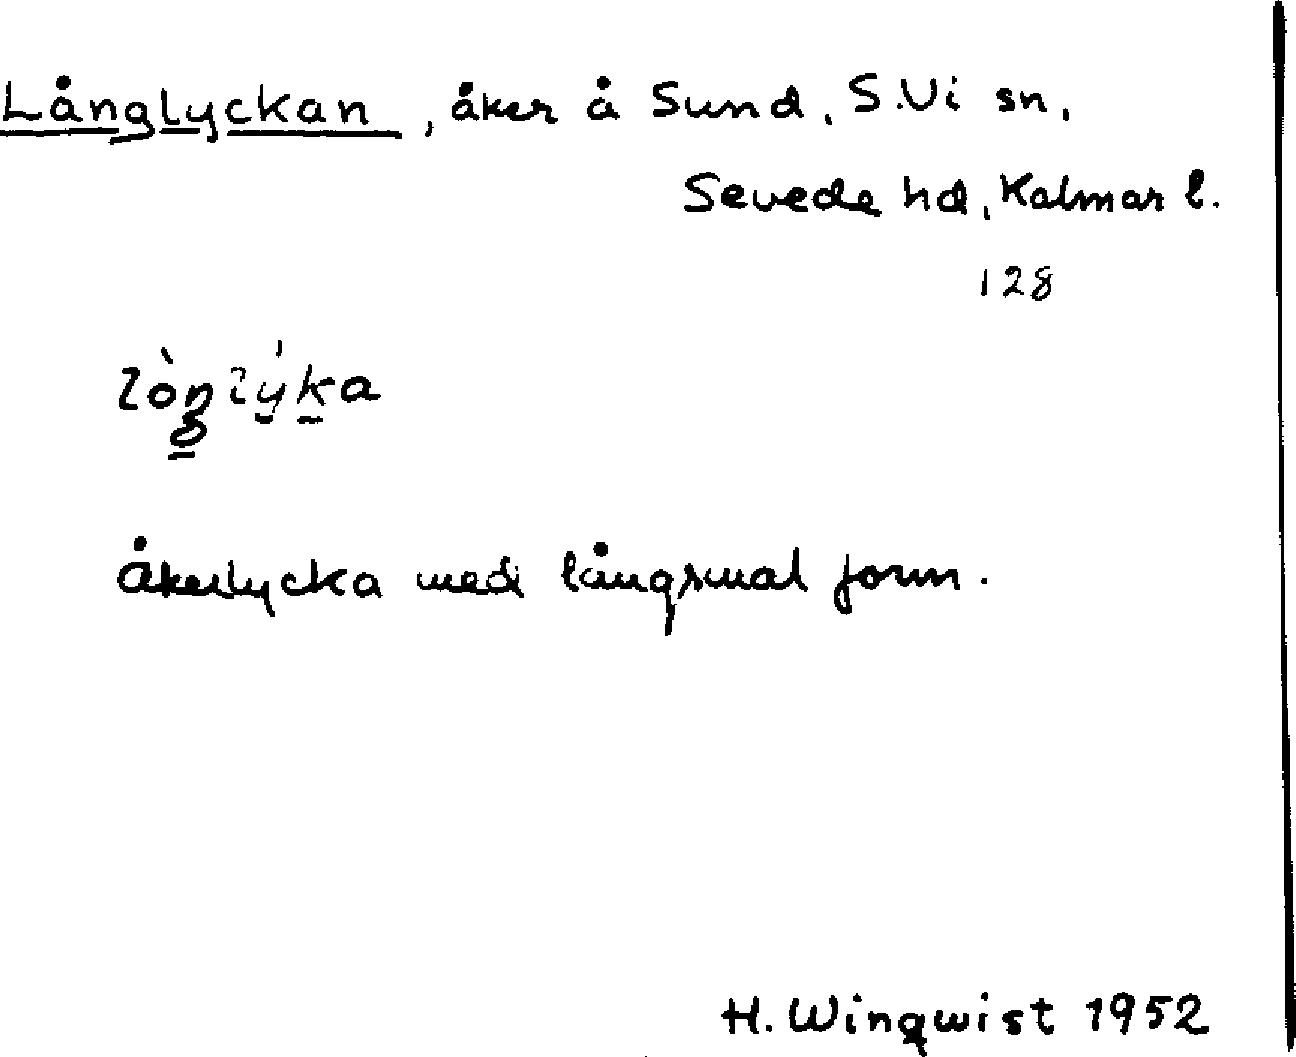 Långlyckan, åker å Sund, S.Vi sn,
Sevede hd, Kalmar l.
128
åkerlycka med långsmal form.
H. Winqwist 1952